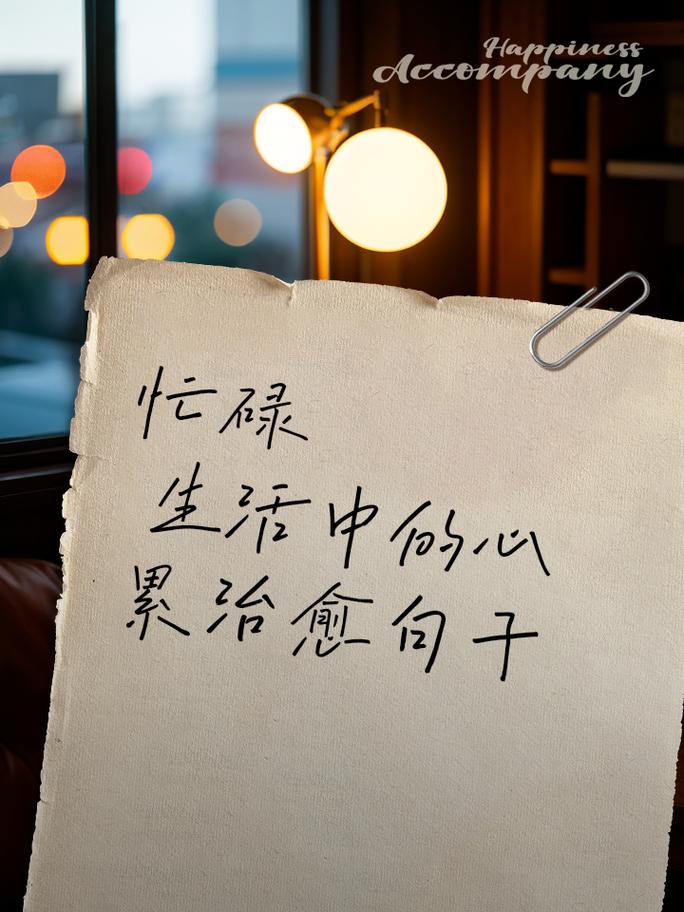 Happiness
Accompany
忙碌
生活中的心
累治愈句子